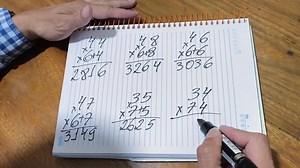 44
x6+4
2816
48
x6+8
3264
46
x6+6
3036
47
x6+7
3149
35
x7+5
2625
34
x74